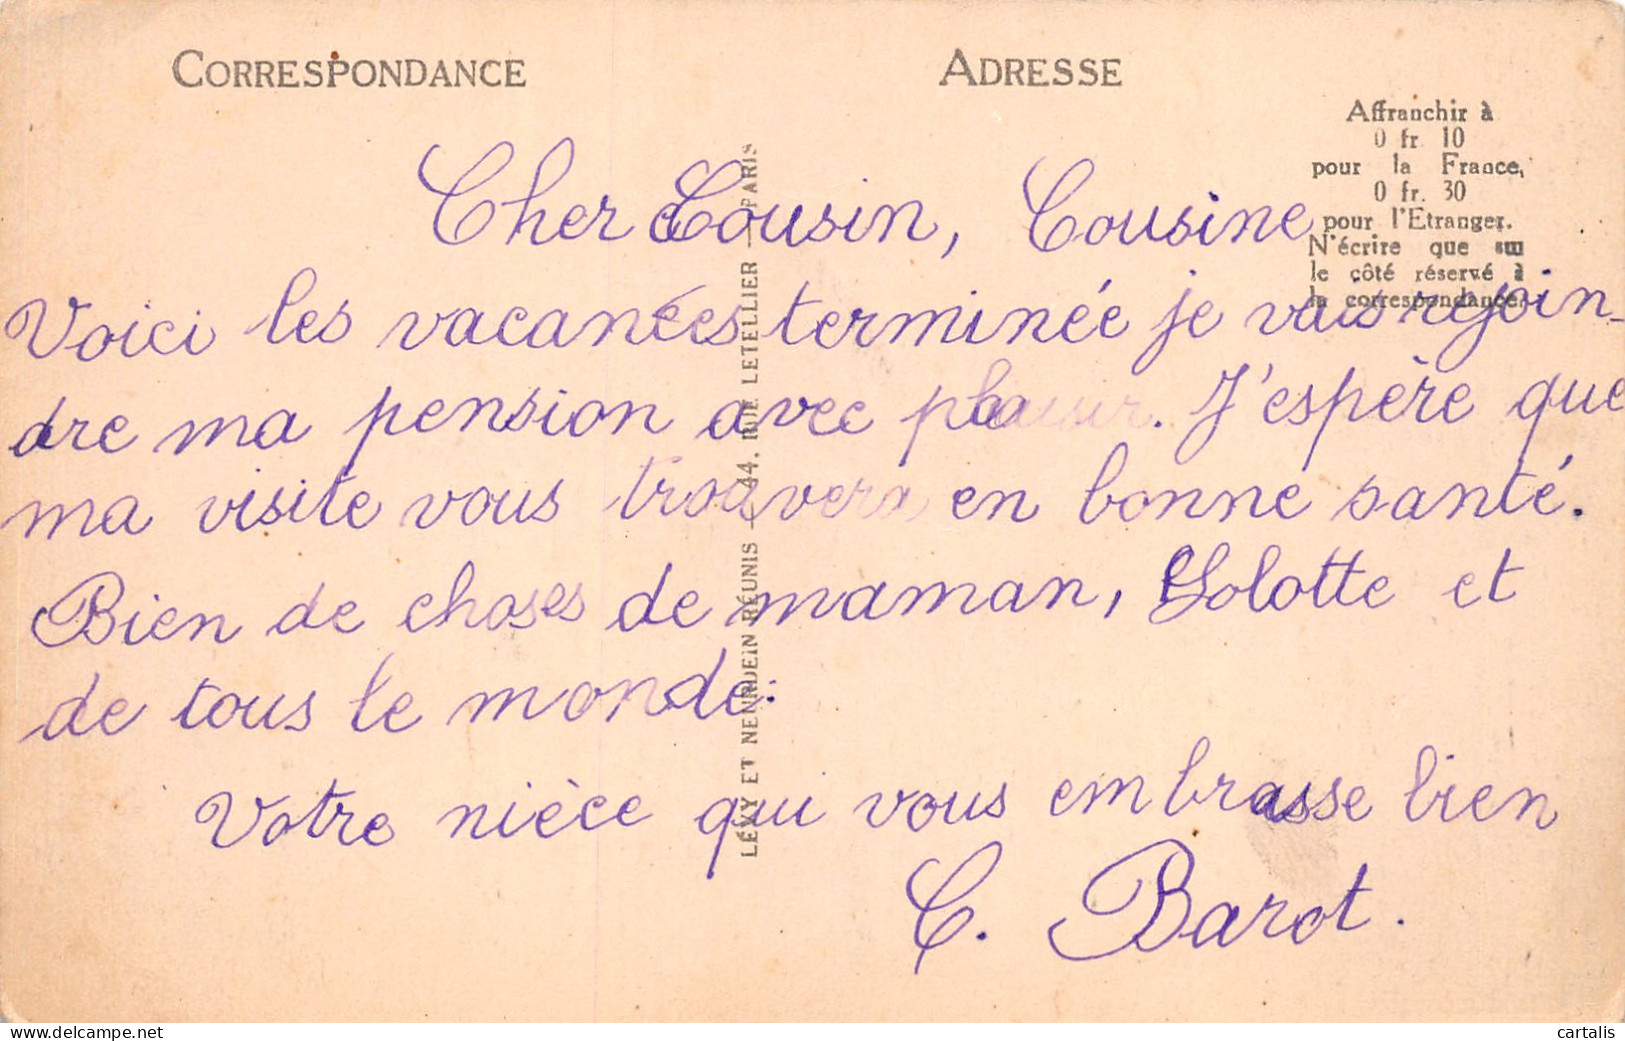 CORRESPONDANCE
ADRESSE
Affranchir à
0 fr. 10
pour la France,
0 fr. 30
pour l'Etranger.
N'écrire que sur
le côté réservé à
la correspondance.
LÉVY ET NEURDEIN RÉUNIS — 44, RUE LETELLIER — PARIS
Cher Cousin, Cousine
Voici les vacances terminée je vais rejoin-
dre ma pension avec plaisir. J'espère que
ma visite vous trouvera en bonne santé.
Bien de choses de maman, Lolotte et
de tous le monde.
Votre nièce qui vous embrasse bien
C. Barot.
cartalis
www.delcampe.net